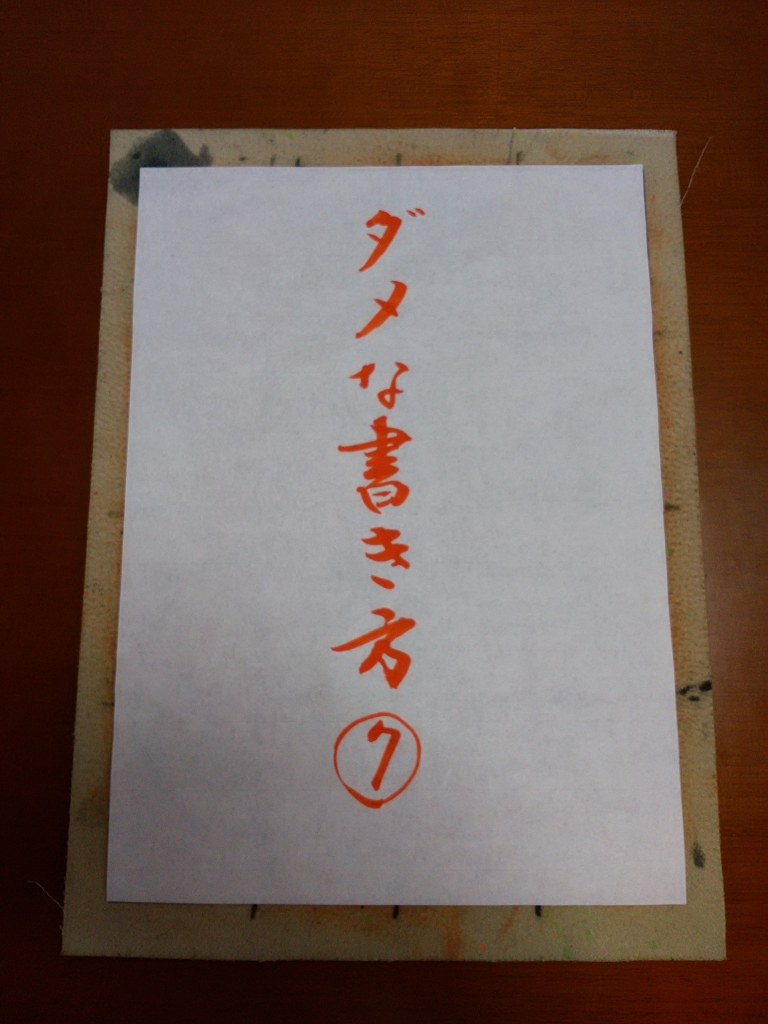 ダメな書き方⑦